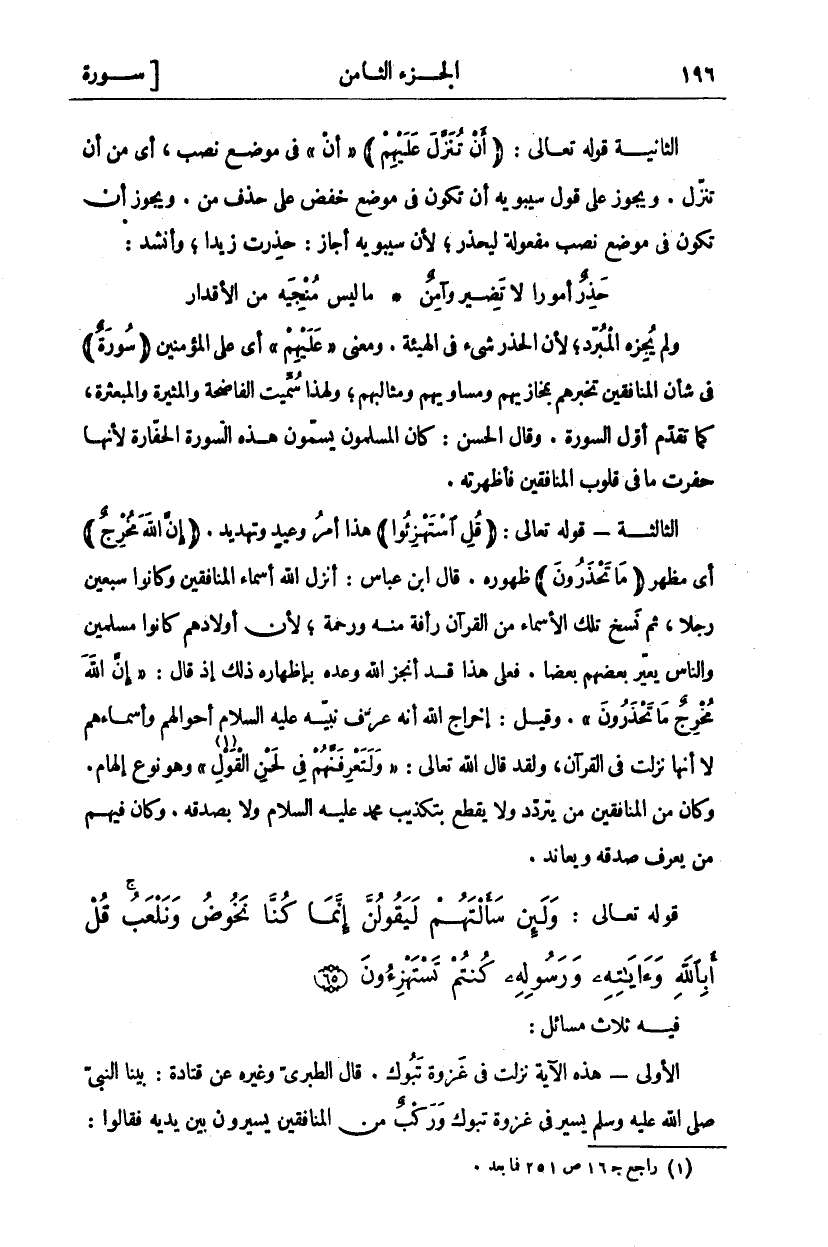 ١٩٦ الجـزء الثامن [ ســورة
الثانيـة قوله تعـالى : ﴿ أَنْ تُنَزَّلَ عَلَيْهِمْ ﴾ « أنْ » فى موضـع نصب ، أى من أن
تنزّل . ويجوز على قول سيبويه أن تكون فى موضع خفض على حذف من . ويجوز أن
تكون فى موضع نصب مفعولة ليحذر ؛ لأن سيبويه أجاز : حذِرت زيدا ؛ وأنشد :
حَذِرٌ أمورا لا تَضِير وآمِنٌ * ما ليس مُنْجِيَه من الأقدار
ولم يُجِزه المُبَرّد؛ لأن الحذر شىء فى الهيئة . ومعنى « عَلَيْهِمْ » أى على المؤمنين ﴿ سُورَةٌ ﴾
فى شأن المنافقين تخبرهم بمخازيهم ومساويهم ومثالبهم ؛ ولهذا سُمِّيت الفاضحة والمثيرة والمبعثرة ،
كما تقدّم أوّل السورة . وقال الحسن : كان المسلمون يسمّون هـذه السّورة الحفّارة لأنهـا
حفرت ما فى قلوب المنافقين فأظهرته .
الثالثـة — قوله تعالى : ﴿ قُلِ ٱسْتَهْزِئُوا ﴾ هذا أمرُ وعيدٍ وتهديد . ﴿ إِنَّ اللّهَ مُخْرِجٌ ﴾
أى مظهر ﴿ مَا تَحْذَرُونَ ﴾ ظهوره . قال ابن عباس : أنزل الله أسماء المنافقين وكانوا سبعين
رجلا ، ثم نَسخ تلك الأسماء من القرآن رأفة منـه ورحمة ؛ لأن أولادهم كانوا مسلمين
والناس يعيّر بعضهم بعضا . فعلى هذا قـد أنجز الله وعده بإظهاره ذلك إذ قال : « إِنَّ اللّهَ
مُخْرِجٌ مَا تَحْذَرُونَ » . وقيـل : إخراج الله أنه عرّف نبيّـه عليه السلام أحوالهم وأسمـاءهم
لا أنها نزلت فى القرآن، ولقد قال الله تعالى : « وَلَتَعْرِفَنَّهُمْ فِي لَحْنِ الْقَوْلِ (١) » وهو نوع إلهام.
وكان من المنافقين من يتردّد ولا يقطع بتكذيب محمد عليـه السلام ولا بصدقه . وكان فيهـم
من يعرف صدقه ويعاند .
قوله تعالى : وَلَئِن سَأَلْتَهُـمْ لَيَقُولُنَّ إِنَّمَـا كُنَّا نَخُوضُ وَنَلْعَبُ ۚ قُلْ
أَبِٱللَّهِ وَءَايَـٰتِهِۦ وَرَسُولِهِۦ كُنتُمْ تَسْتَهْزِءُونَ ۝٦٥
فيـه ثلاث مسائل :
الأولى — هذه الآية نزلت فى غَزوة تَبُوك . قال الطبرىّ وغيره عن قتادة : بينا النبىّ
صلى الله عليه وسلم يسير فى غزوة تبوك وَرَكْبٌ من المنافقين يسيرون بين يديه فقالوا :
(١) راجع جـ ١٦ ص ٢٥١ فما بعد .